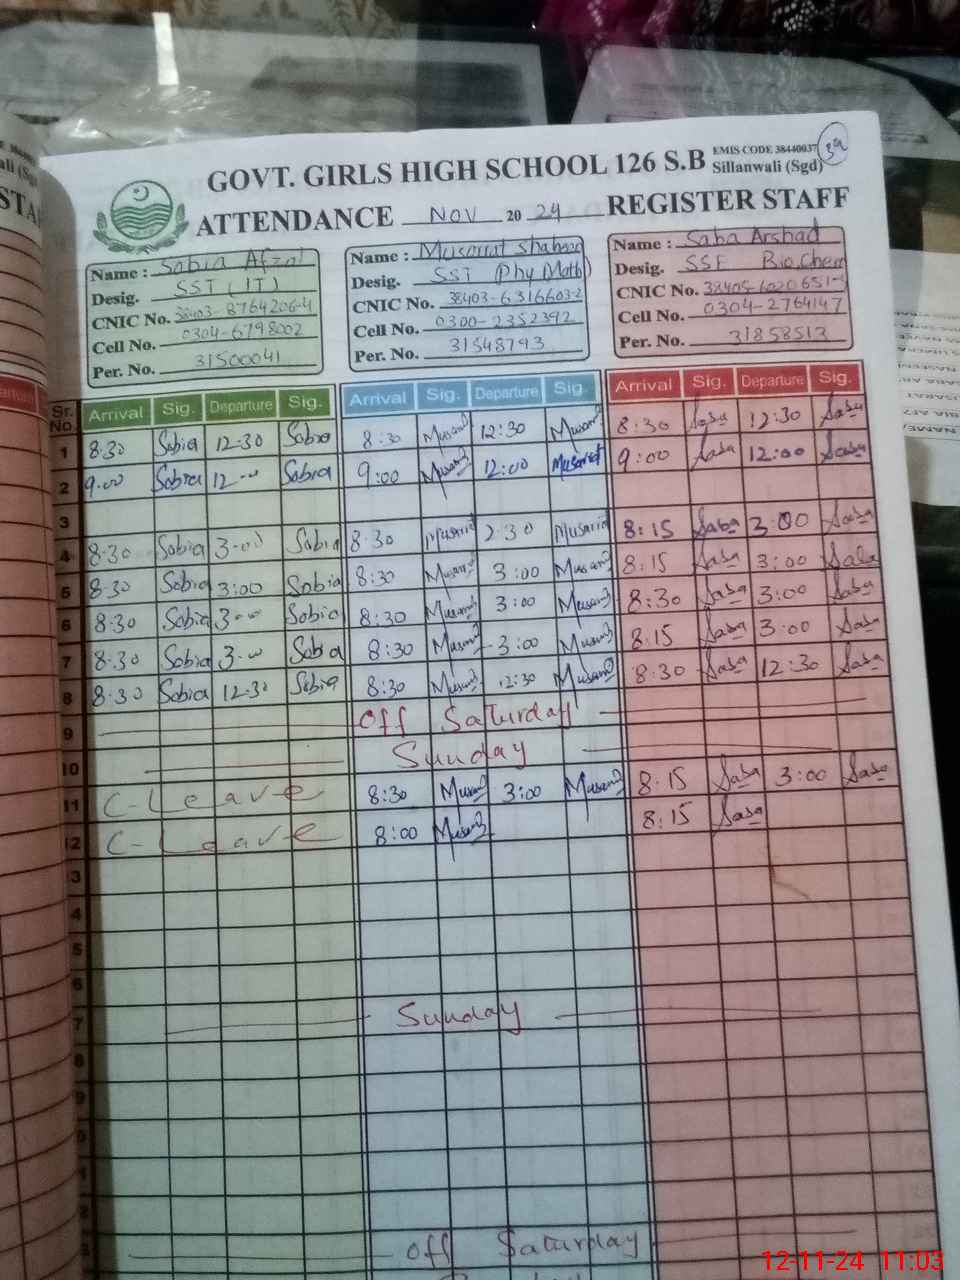 GOVT. GIRLS HIGH SCHOOL 126 S.B EMIS CODE 38440037 Sillanwali (Sgd) 39
ATTENDANCE Nov 20 24 REGISTER STAFF
Name : Sobia Afzal Name : Musarrat Shaheen Name : Saba Arshad
Desig. SST (IT) Desig. SST (Phy Math) Desig. SSE Bio.Chem
CNIC No. 38403-8764206-4 CNIC No. 38403-6316603-2 CNIC No. 38405-6020651-4
Cell No. 0304-6798002 Cell No. 0300-2352392 Cell No. 0304-2764147
Per. No. 31500041 Per. No. 31548793 Per. No. 31858513
Sr. No. Arrival Sig. Departure Sig. Arrival Sig. Departure Sig. Arrival Sig. Departure Sig.
1 8.30 Sobia 12-30 Sobia 8:30 Musarrat 12:30 Musarrat 8:30 Saba 12:30 Saba
2 9.00 Sobia 12-00 Sobia 9:00 Musarrat 12:00 Musarrat 9:00 Saba 12:00 Saba
3
4 8.30 Sobia 3-00 Sobia 8:30 Musarrat 2:30 Musarrat 8:15 Saba 3:00 Saba
5 8.30 Sobia 3:00 Sobia 8:30 Musarrat 3:00 Musarrat 8:15 Saba 3:00 Saba
6 8.30 Sobia 3-00 Sobia 8:30 Musarrat 3:00 Musarrat 8:30 Saba 3:00 Saba
7 8.30 Sobia 3-00 Sobia 8:30 Musarrat 3:00 Musarrat 8:15 Saba 3:00 Saba
8 8.30 Sobia 12-30 Sobia 8:30 Musarrat 12:30 Musarrat 8:30 Saba 12:30 Saba
9 Off Saturday
10 Sunday
11 C-Leave 8:30 Musarrat 3:00 Musarrat 8:15 Saba 3:00 Saba
12 C-Leave 8:00 Musarrat 8:15 Saba
3
4
5
6
7 Sunday
8
9
0
1
2
3 Off Saturday
12-11-24 11:03